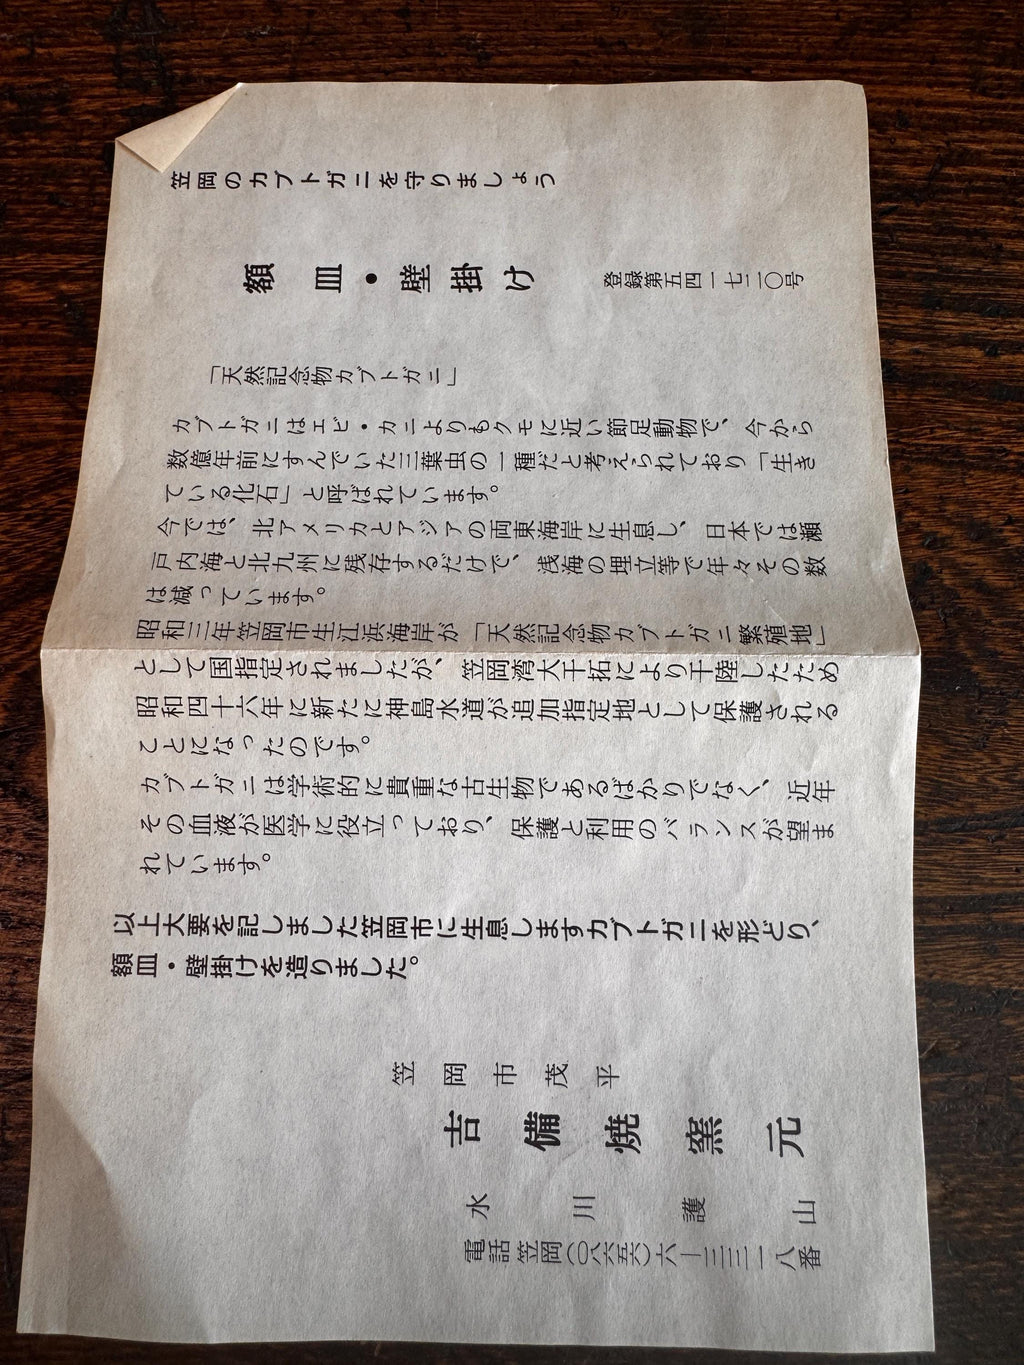 笠岡のカブトガニを守りましょう
額皿・壁掛け
登録第五四一七二〇号
「天然記念物カブトガニ」
カブトガニはエビ・カニよりもクモに近い節足動物で、今から
数億年前にすんでいた三葉虫の一種だと考えられており「生き
ている化石」と呼ばれています。
今では、北アメリカとアジアの両東海岸に生息し、日本では瀬
戸内海と北九州に残存するだけで、浅海の埋立等で年々その数
は減っています。
昭和三年笠岡市生江浜海岸が「天然記念物カブトガニ繁殖地」
として国指定されましたが、笠岡湾大干拓により干陸したため
昭和四十六年に新たに神島水道が追加指定地として保護される
ことになったのです。
カブトガニは学術的に貴重な古生物であるばかりでなく、近年
その血液が医学に役立っており、保護と利用のバランスが望ま
れています。
以上大要を記しました笠岡市に生息しますカブトガニを形どり、
額皿・壁掛けを造りました。
笠岡市茂平
吉備焼窯元
水川護山
電話笠岡(〇八六五六)六―三三一八番